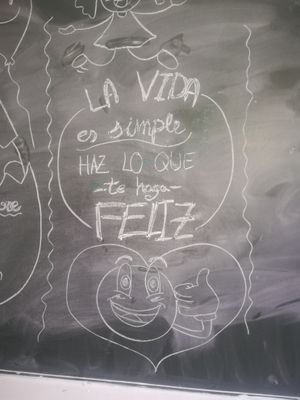 LA VIDA
es simple,
HAZ LO QUE
-te haga-
FELIZ